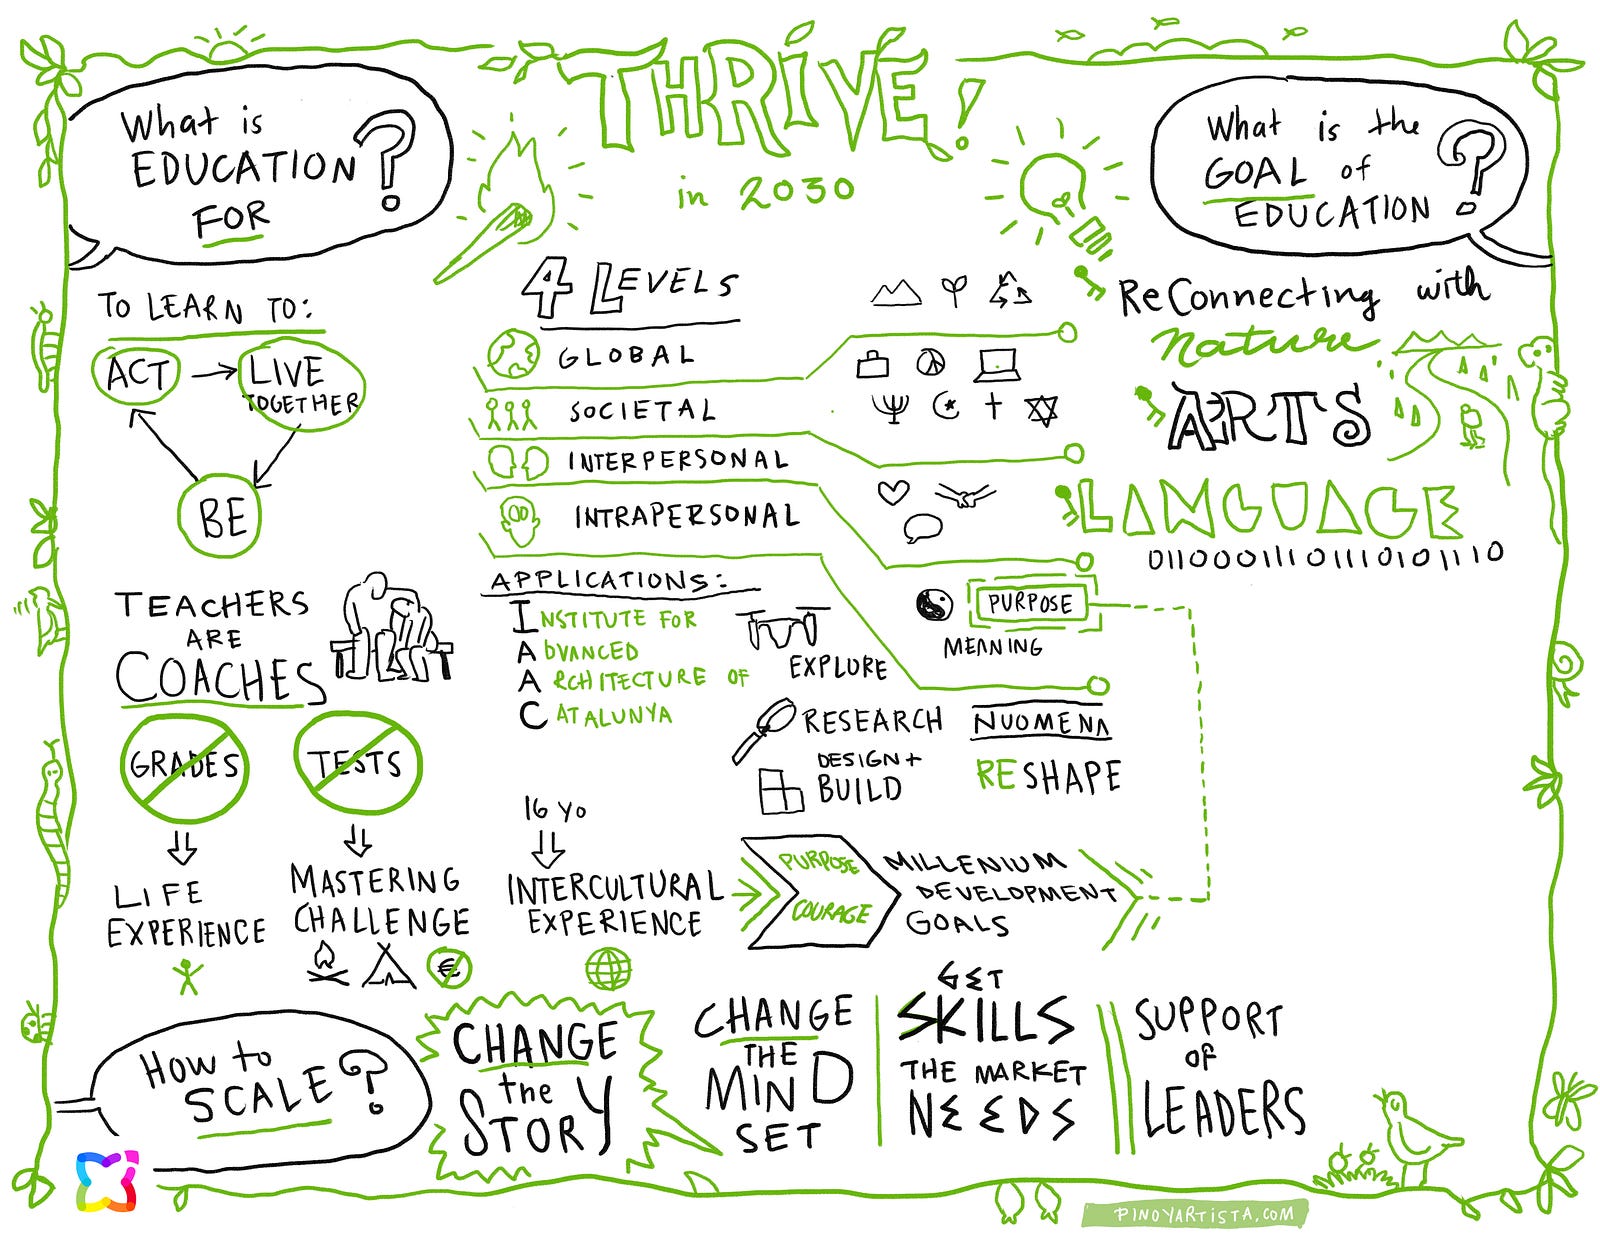 THRIVE!
in 2030
What is
EDUCATION
FOR ?
TO LEARN TO:
ACT
LIVE
TOGETHER
BE
TEACHERS
ARE
COACHES
GRADES
TESTS
LIFE
EXPERIENCE
MASTERING
CHALLENGE
€
4 LEVELS
GLOBAL
SOCIETAL
INTERPERSONAL
INTRAPERSONAL
PURPOSE
MEANING
NUOMENA
RESHAPE
APPLICATIONS:
INSTITUTE FOR
ADVANCED
ARCHITECTURE OF
CATALUNYA
EXPLORE
RESEARCH
DESIGN +
BUILD
16 YO
INTERCULTURAL
EXPERIENCE
PURPOSE
COURAGE
MILLENIUM
DEVELOPMENT
GOALS
What is the
GOAL of
EDUCATION ?
ReConnecting with
nature
ARTS
LANGUAGE
01100011101110101110
How to
SCALE ?
CHANGE
the
STORY
CHANGE
THE
MIND
SET
GET
SKILLS
THE MARKET
NEEDS
SUPPORT
OF
LEADERS
PINOYARTISTA.COM